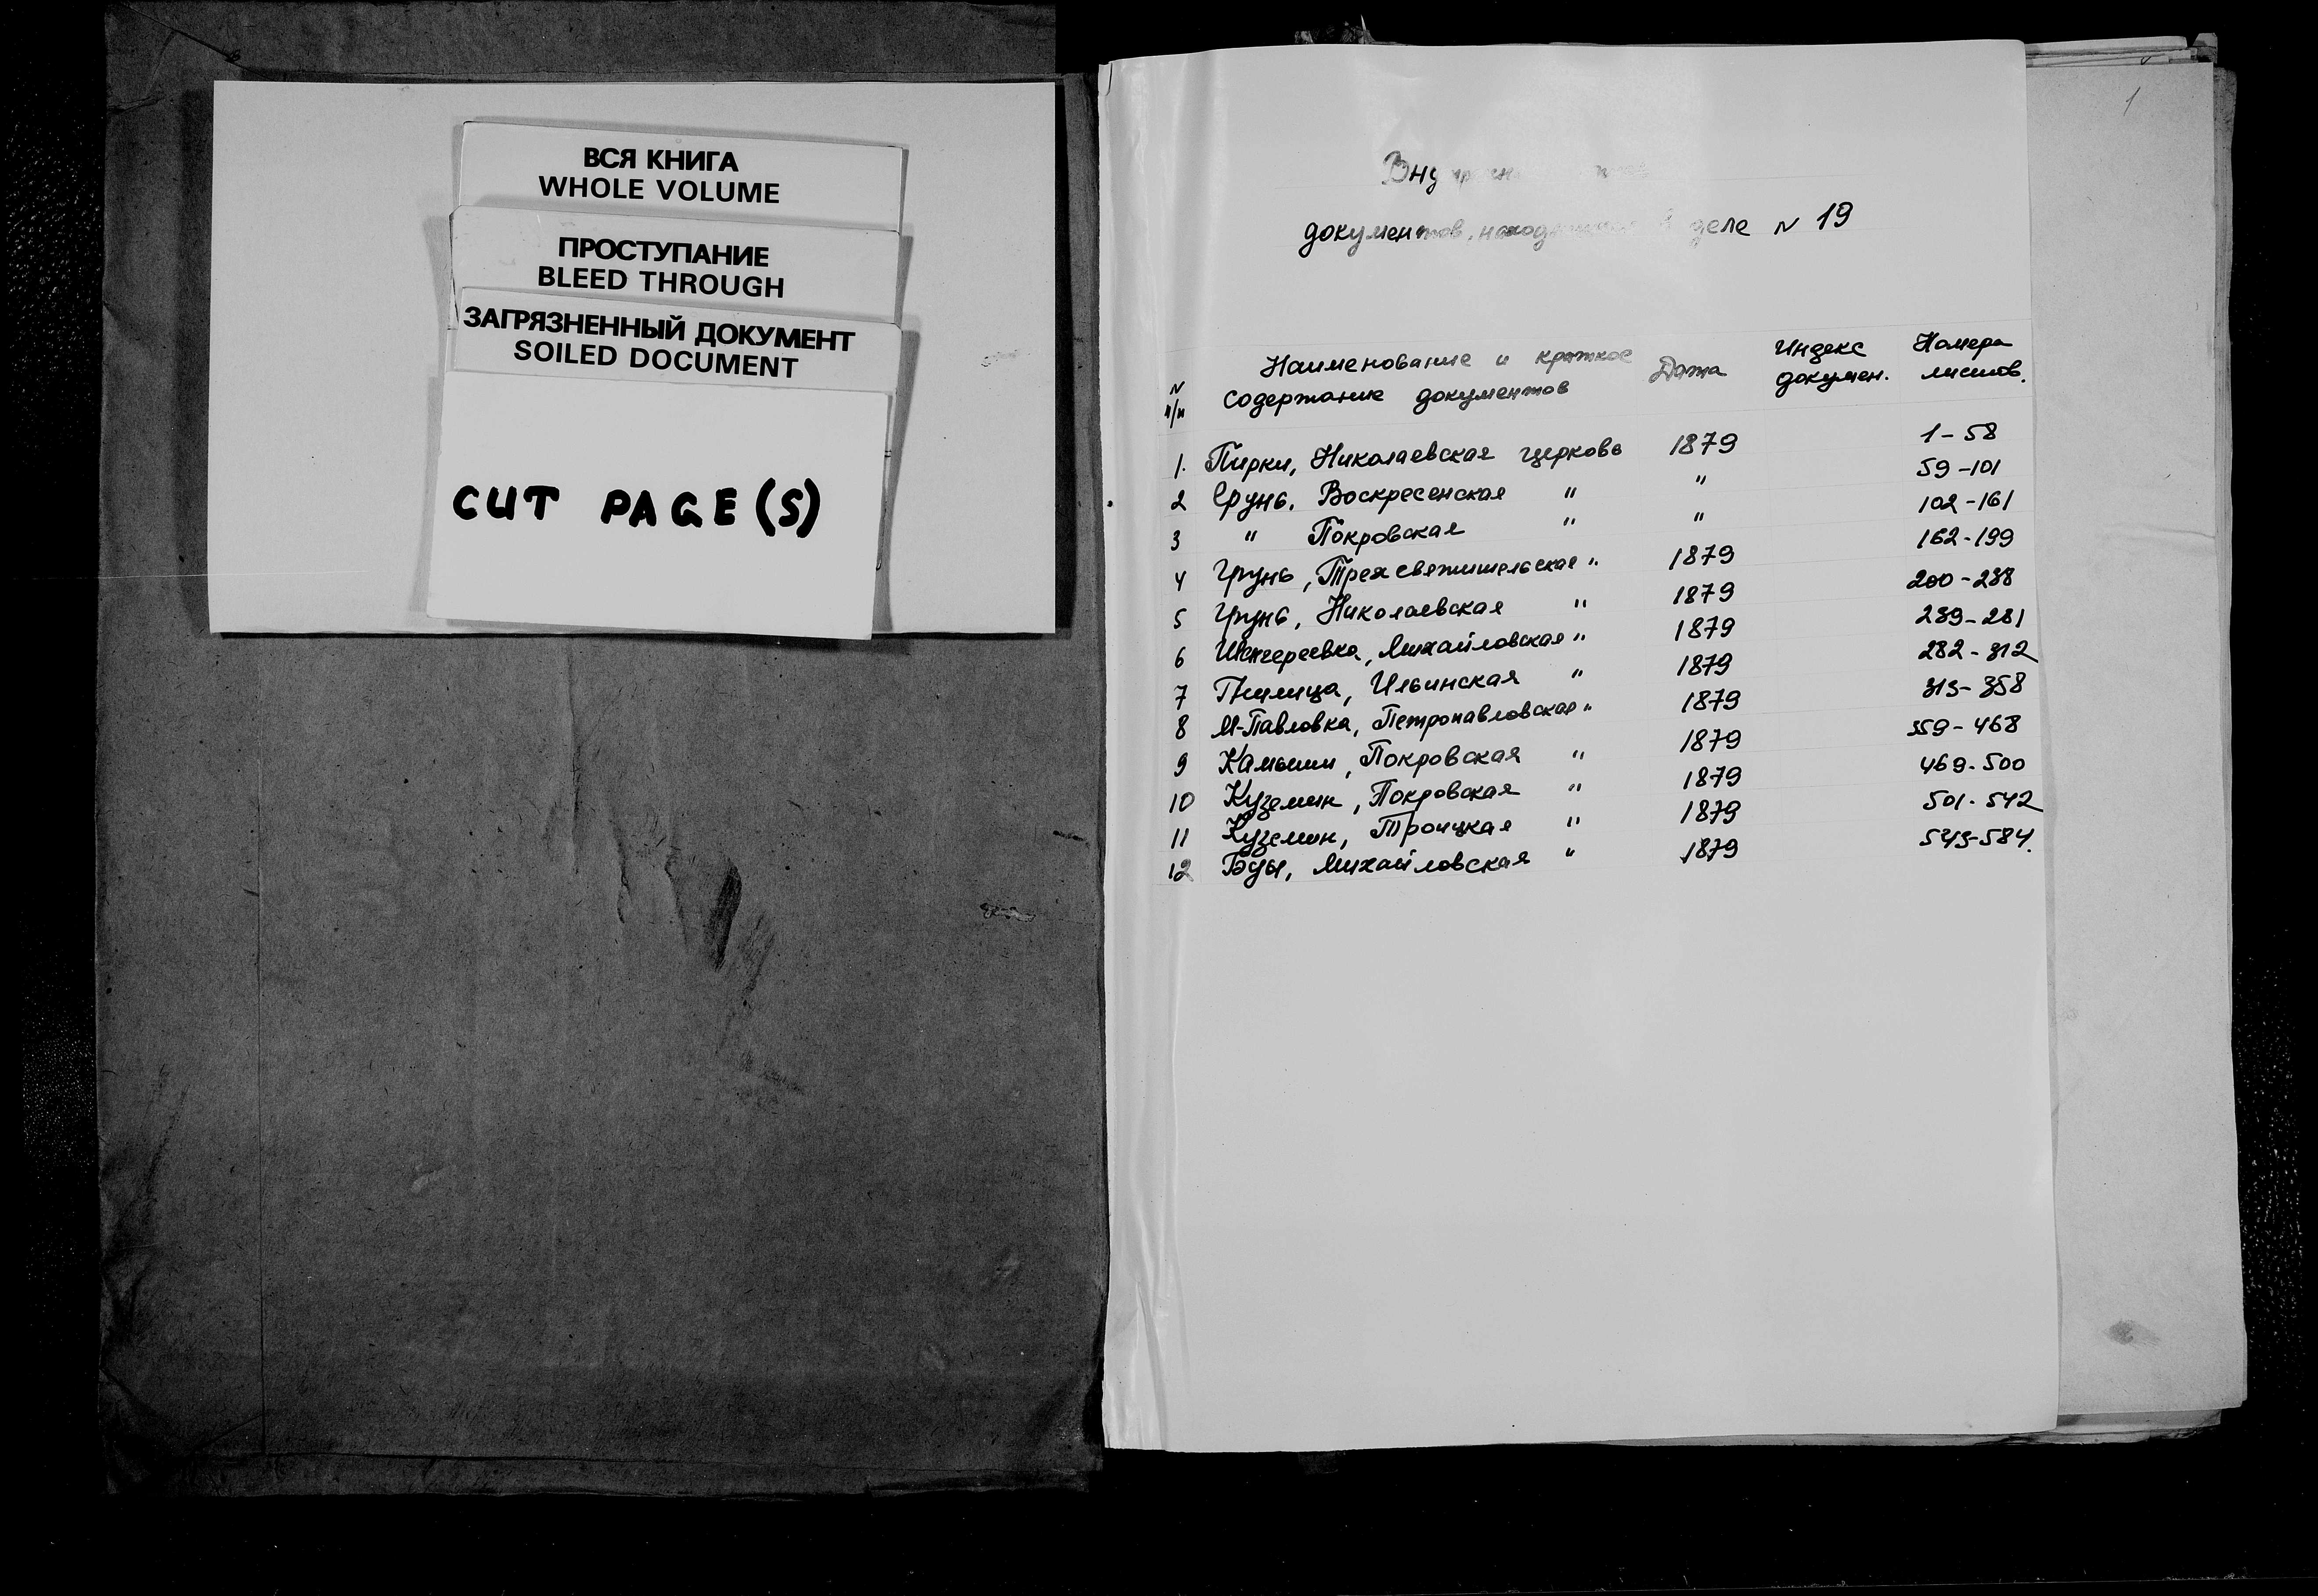 ВСЯ КНИГА
WHOLE VOLUME
ПРОСТУПАНИЕ
BLEED THROUGH
ЗАГРЯЗНЕННЫЙ ДОКУМЕНТ
SOILED DOCUMENT
CUT PAGE(S)
1
документов, находящихся в деле N 19
N п/п Наименование и краткое содержание документов Дата Индекс докумен. Номера листов.
1. Пирки, Николаевская церковь 1879 1-58
2 Грунь, Воскресенская " " 59-101
3 " Покровская " " 102-161
4 Грунь, Трехсвятительская " 1879 162-199
5 Грунь, Николаевская " 1879 200-238
6 Михайловская " 1879 239-281
7 Ильинская " 1879 282-312
8 М-Павловка, Петропавловская " 1879 313-358
9 Камыши, Покровская " 1879 359-468
10 Куземин, Покровская " 1879 469-500
11 Куземин, Троицкая " 1879 501-542
12 Буды, Михайловская " 1879 543-584.